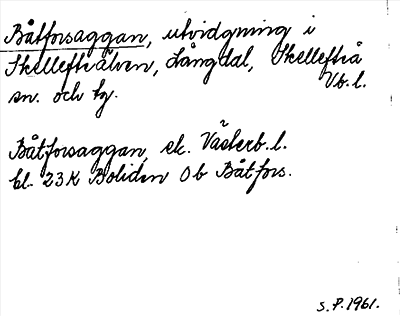 Båtforsaggan, utvidgning i
Skellefteälven, Långdal, Skellefteå
sn. och tg. Vb.l.
Båtforsaggan, ek. Västerb.l.
bl. 23K Boliden 0b Båtfors.
S.P.1961.